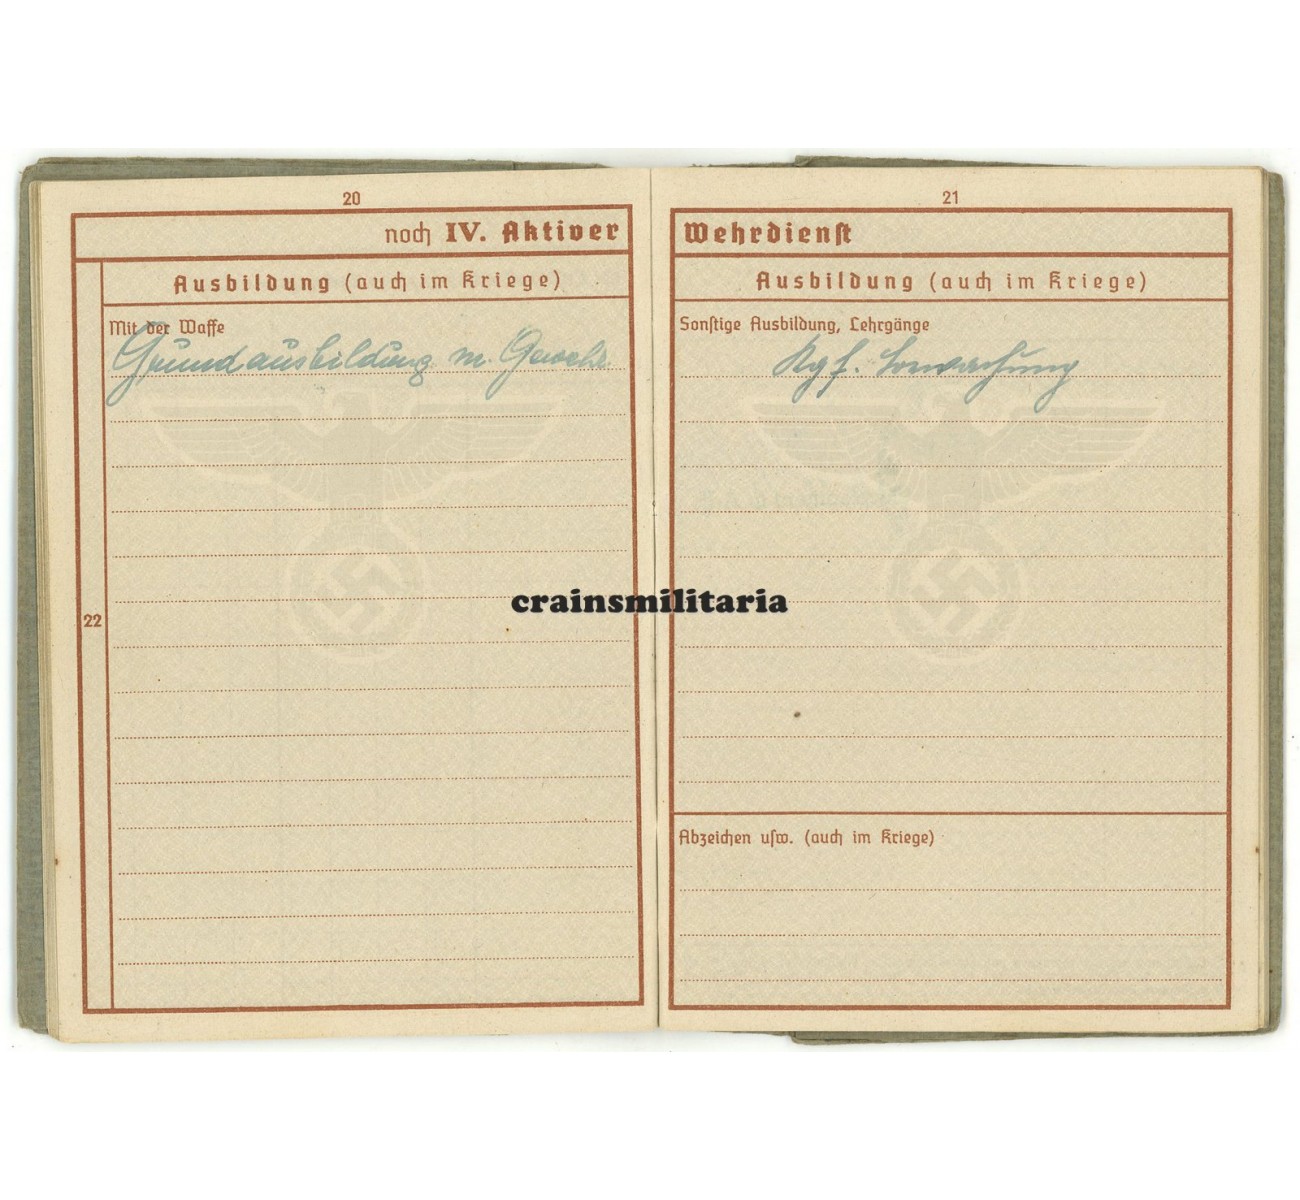 20
noch IV. Aktiver
Ausbildung (auch im Kriege)
Mit der Waffe
Grundausbildung m. Gewehr.
22
21
Wehrdienst
Ausbildung (auch im Kriege)
Sonstige Ausbildung, Lehrgänge
Kgf. Bewachung
Abzeichen usw. (auch im Kriege)
crainsmilitaria